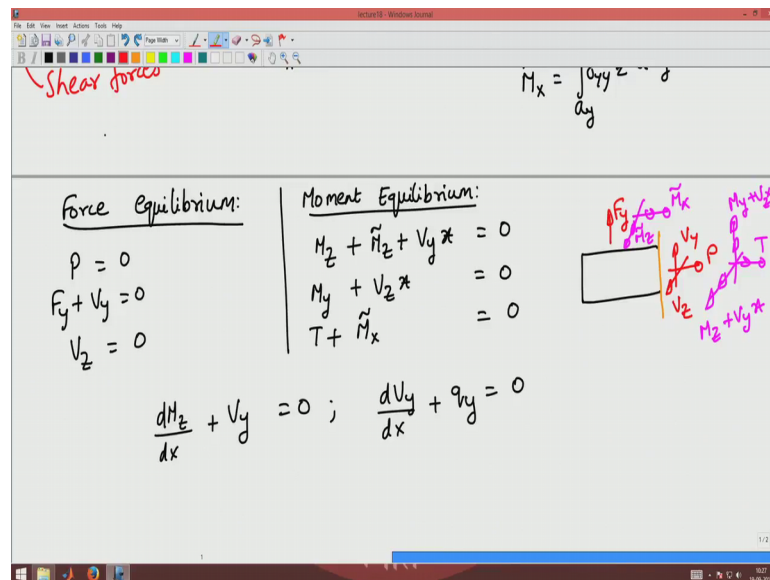 lecture18 - Windows Journal
File Edit View Insert Actions Tools Help
Page Width
B I
Shear forces
M̃x = ∫ σyy z
ay
Force Equilibrium:
P = 0
Fy + Vy = 0
Vz = 0
Moment Equilibrium:
Mz + M̃z + Vy x = 0
My + Vz x = 0
T + M̃x = 0
Fy M̃x
M̃z
Vy P
Vz
My + Vz x
T
Mz + Vy x
dMz/dx + Vy = 0 ; dVy/dx + qy = 0
1
1/2
10:27